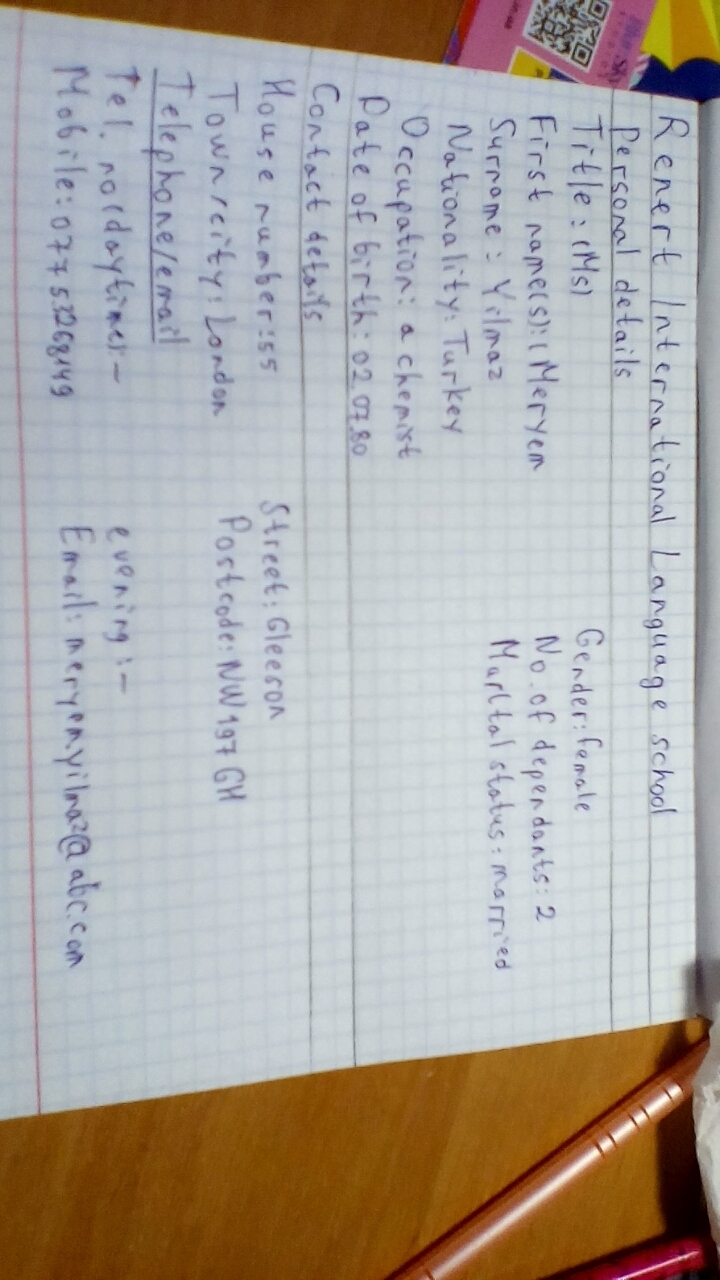 Renert International Language school
personal details
Title: (Ms) Gender: female
First name(s): Meryem No. of dependants: 2
Surname: Yilmaz Marital status: married
Nationality: Turkey
Occupation: a chemist
Date of birth: 02.07.80
Contact details
House number: 55 Street: Gleeson
Town/city: London Postcode: NW197GH
Telephone/email
Tel. no(daytime): - evening: -
Email: meryemyilmaz@abc.com